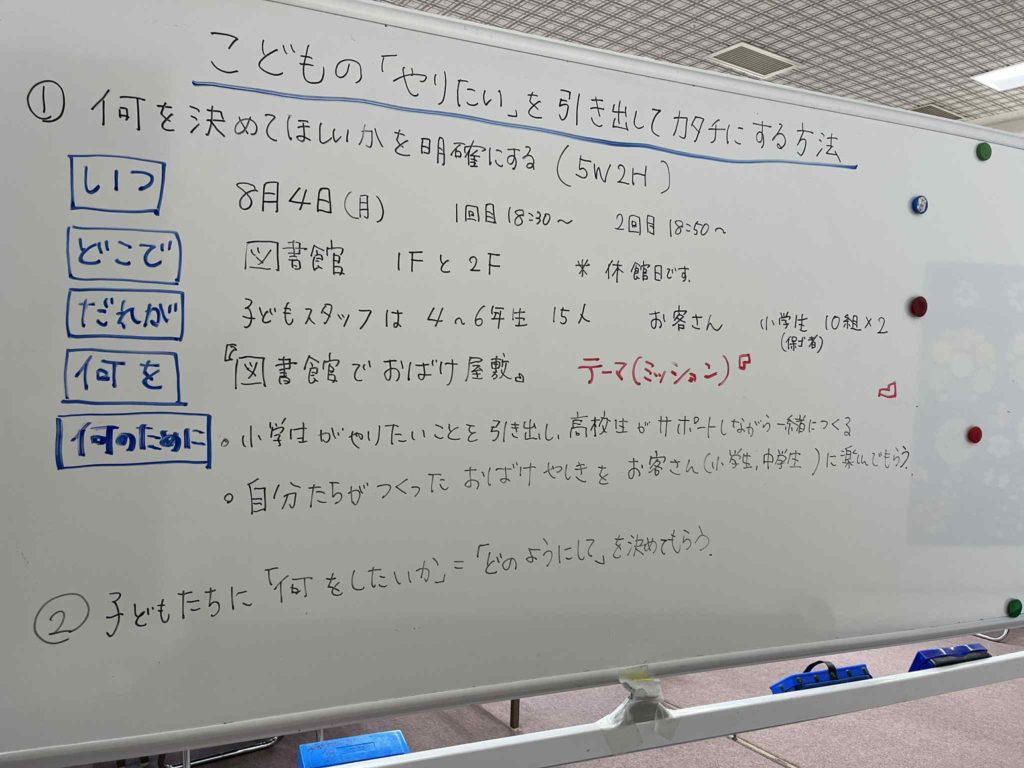 こどもの「やりたい」を引き出してカタチにする方法
① 何を決めてほしいかを明確にする (5W2H)
いつ 8月4日(月) 1回目 18:30〜 2回目 18:50〜
どこで 図書館 1Fと2F ※ 休館日です.
だれが 子どもスタッフは 4〜6年生 15人 お客さん 小学生 10組×2
(保ゴ者)
何を 『図書館でおばけ屋敷』 テーマ(ミッション)
何のために 。小学生がやりたいことを引き出し、高校生がサポートしながら一緒につくる
。自分たちがつくったおばけやしきをお客さん(小学生,中学生 )に楽しんでもらう.
② 子どもたちに「何をしたいか」=「どのようにして」を決めてもらう.